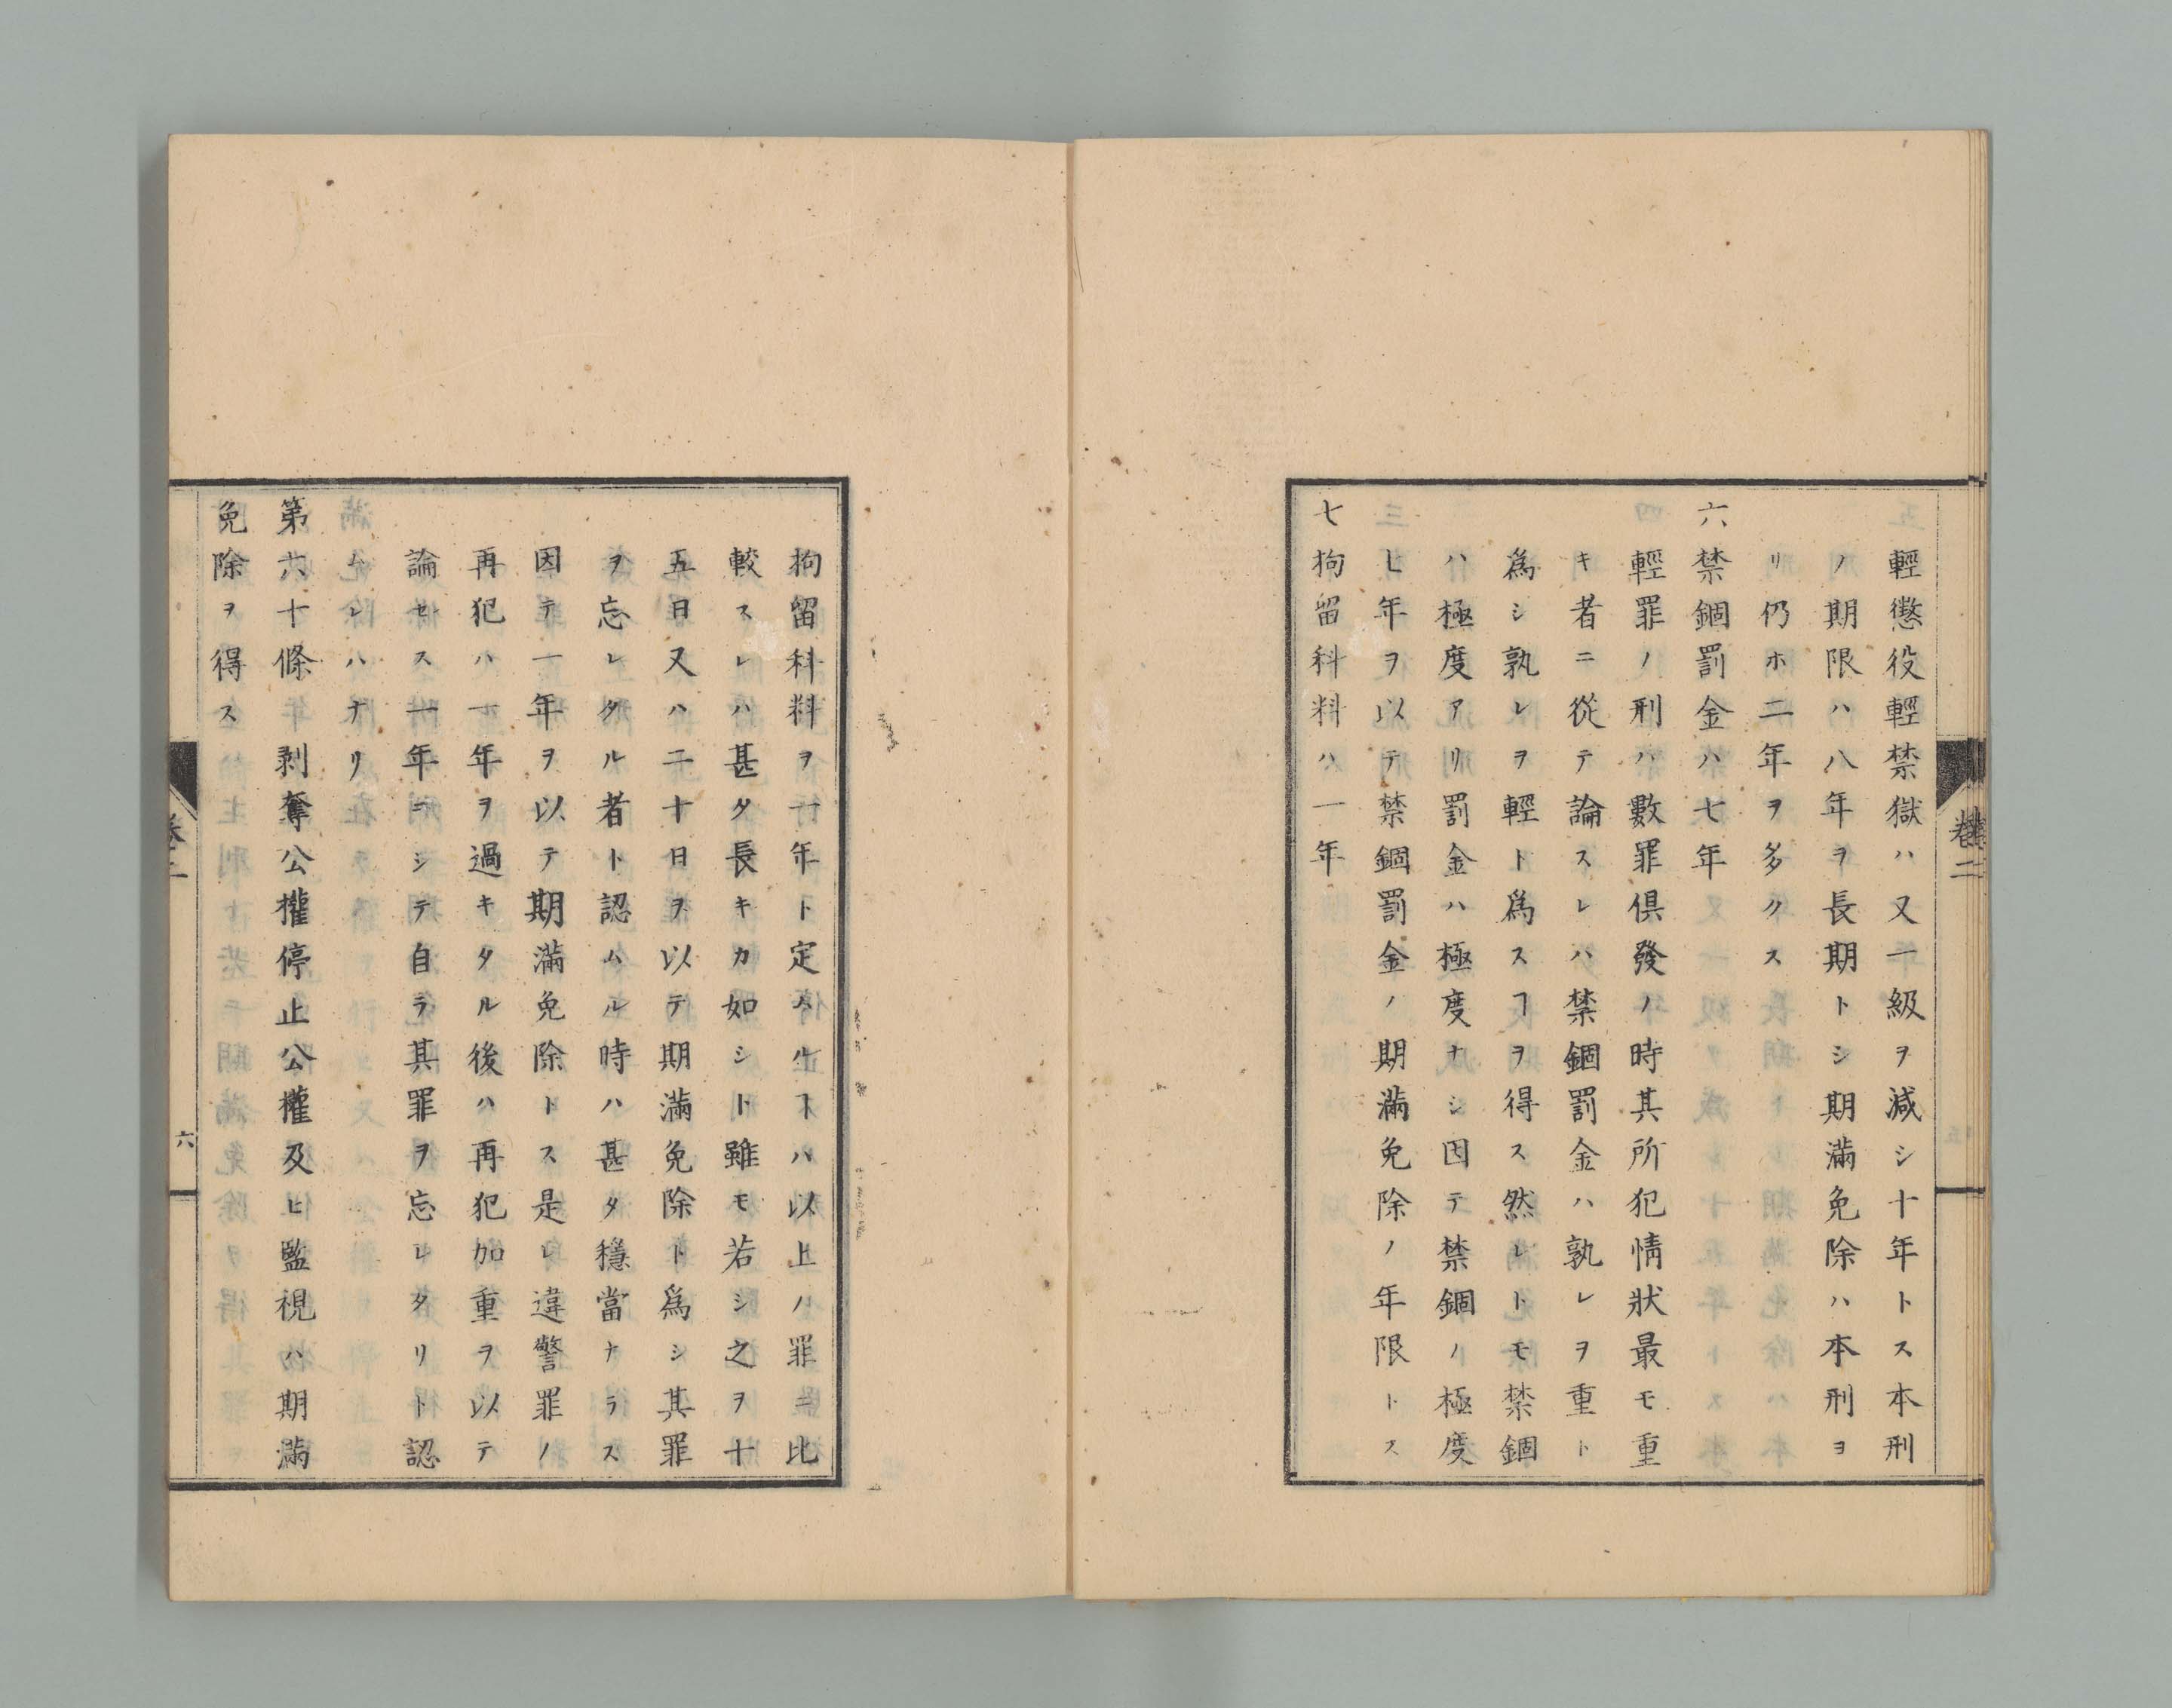 輕懲役輕禁獄ハ又一級ヲ減シ十年トス本刑
ノ期限ハ八年ヲ長期トシ期滿免除ハ本刑ヨ
リ仍ホ二年ヲ多クス
六禁錮罰金ハ七年
輕罪ノ刑ハ數罪俱發ノ時其所犯情狀最モ重
キ者ニ從テ論スレハ禁錮罰金ハ孰レヲ重ト
爲シ孰レヲ輕ト爲スヿヲ得ス然レトモ禁錮
ハ極度アリ罰金ハ極度ナシ因テ禁錮ノ極度
七年ヲ以テ禁錮罰金ノ期滿免除ノ年限トス
七拘留科料ハ一年
卷二
拘留科料ヲ一年ト定ムルヿハ以上ノ罪ニ比
較スレハ甚タ長キカ如シト雖モ若シ之ヲ十
五日又ハ二十日ヲ以テ期滿免除ト爲シ其罪
ヲ忘レタル者ト認ムル時ハ甚タ穩當ナラス
因テ一年ヲ以テ期滿免除トス是レ違警罪ノ
再犯ハ一年ヲ過キタル後ハ再犯加重ヲ以テ
論セス一年ニシテ自ラ其罪ヲ忘レタリト認
ムレハナリ
第六十條剥奪公權停止公權及ヒ監視ハ期滿
免除ヲ得ス
卷二
六